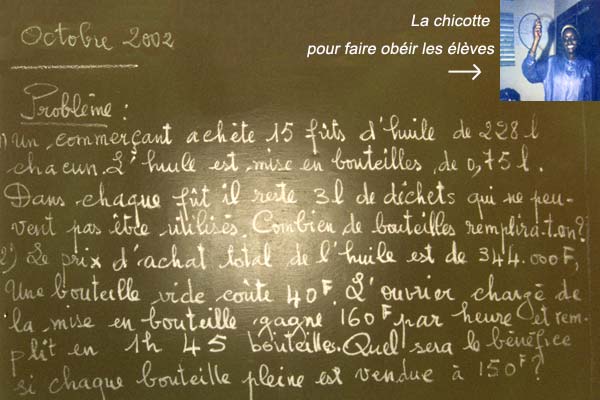 La chicotte
pour faire obéir les élèves
Octobre 2002
Problème :
1) Un commerçant achète 15 fûts d'huile de 228 l
chacun. L'huile est mise en bouteilles de 0,75 l.
Dans chaque fût il reste 3 l de déchets qui ne peu-
vent pas être utilisés. Combien de bouteilles remplira-t-on?
2) Le prix d'achat total de l'huile est de 344.000F,
Une bouteille vide coûte 40F. L'ouvrier chargé de
la mise en bouteille gagne 160F par heure et rem-
plit en 1h 45 bouteilles. Quel sera le bénéfice
si chaque bouteille pleine est vendue à 150F?